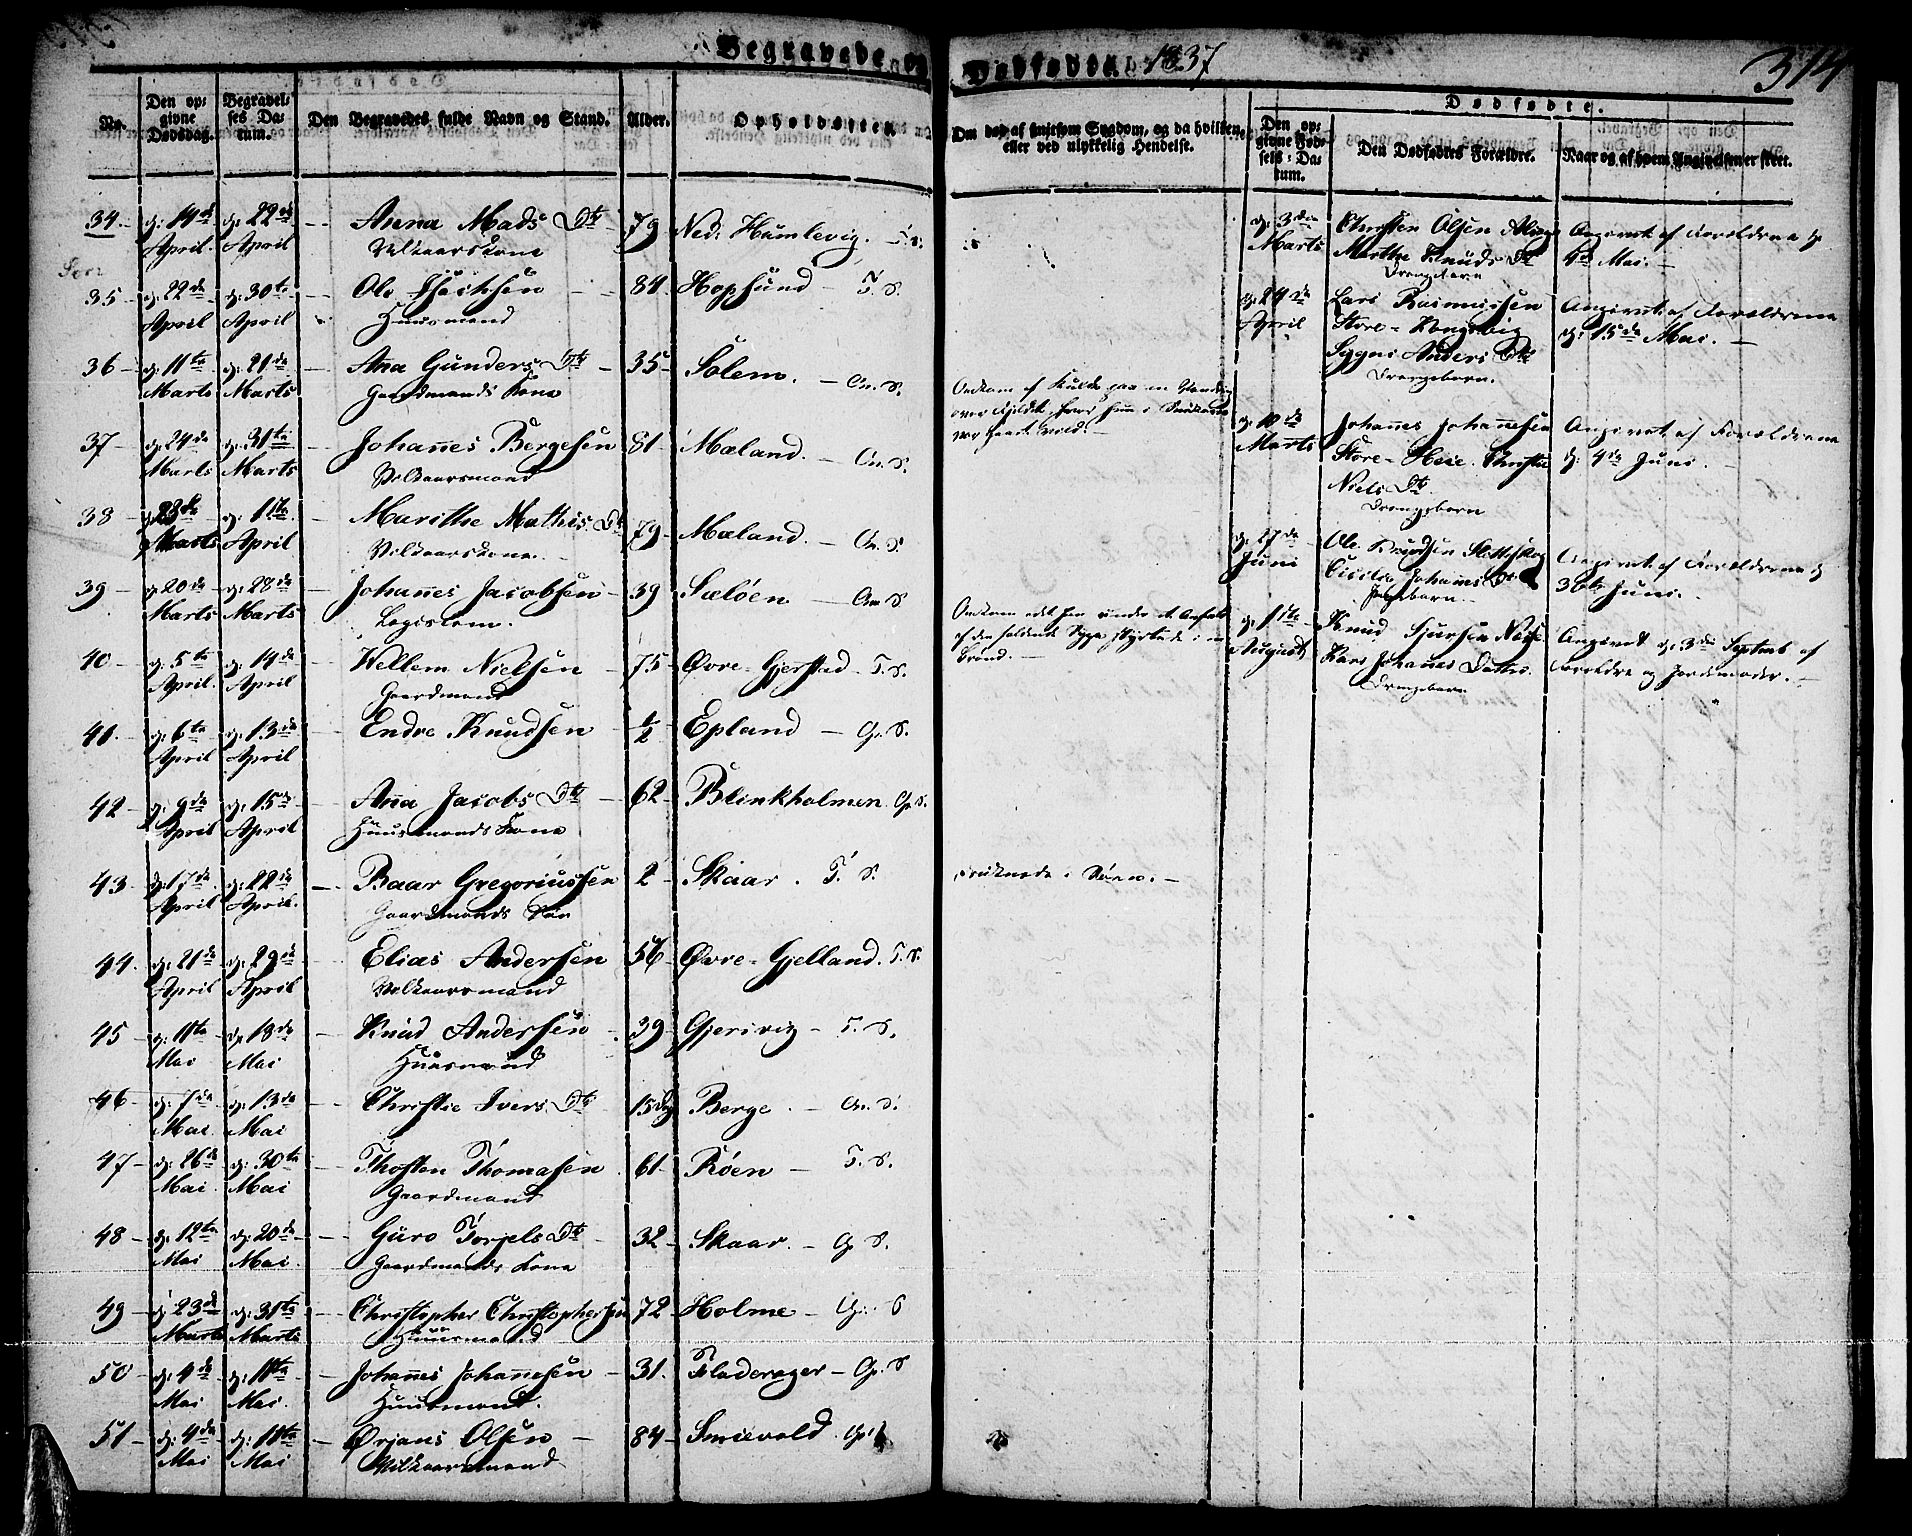 Begravede og Dødfødte 1837
314
No.
Den opgivne Dødsdag.
Begravelses Datum.
Den Begravedes fulde Navn og Stand.
Alder.
Opholdssted.
Om død af smitsom Sygdom, og da hvilken, eller ved ulykkelig Hendelse.
Dødfødte.
Den opgivne Fødsels-Datum.
Den Dødfødtes Forældre.
Naar og af hvem Angivelsen er skeet.
34. d: 14de April d: 22de April — Anna Mads Dtr 79 Ned: Humlevig. F. S.
Velkaarskone
35 d: 22de April d: 30te April — Ole Isachsen 84 Hopsund — F. S.
Huusmand
36 — d: 11te Marts d: 21de Marts — Ana Gunders Dtr — 35 — Solem. — On. S.
Gaardmands Kone
Omkom af Kulde paa en Vandring over Fjeldet,
37 — d: 24de Marts d: 31te Marts — Johannes Bergesen 81 Mæland. — On. S.
Velkaarsmand
38 — d: 23de Marts d: 1ste April — Marithe Mathis Dtr 79 — Mæland. — On. S.
Velkaarskone
39 — d: 20de Marts d: 28de Marts — Johannes Jacobsen 39 Sæløen — On. S.
Logislem.
Omkom ved han under et Anfald af den faldende Syge styrtede i en Brønd. —
40 — d: 5te April d: 14de April — Wellem Nielsen — 75 — Øvre-Gjerstad — F. S.
Gaardmand
41. — d: 6te April d: 13de April — Endre Knudsen ½ Epland — Gr. S.
42 — d: 9de April d: 15de April — Anna Jacobs Dtr — 62 — Blinkholmen Gr. S.
Huusmands Kone
43 — d: 17de April d: 22de April. — Baar Gregoriussen 2 — Skaar. F. S.
Gaardmands Søn
Druknede i Søen. —
44. d: 21de April d: 29de April — Elias Andersen 56 Øvre-Gjelland. F. S.
Velkaarsmand
45 d: 11te Mai d: 18de Mai — Knud Andersen 39 Gjersvig — F. S.
Huusmand
46 — d: 7de Mai d: 13de Mai — Christie Ivers Dtr 15 Dg Berge. — On. S.
47 — d: 26de Mai d: 30te Mai — Thosten Thomasen 61 — Røen — F. S.
Gaardmand
48 — d: 12te Mai d: 20de Mai — Guro Torjels Dtr — 32 — Skaar. — Gr. S.
Gaardmands Kone
49 — d: 23de Marts d: 31te Marts — Christopher Christophersen 72 — Holme — Gr. S
Huusmand
50 — d: 4de Mai d: 11te Mai. — Johannes Johannesen — 31. Fladerager — Gr. S
Huusmand.
51 — d: 4de Mai d: 11te Mai — Ørjans Olsen — 84 — Smievold. Gr.
Velkaarsmand
d: 3die Marts Christen Olsen
Marthe Knuds Dtr
Drengebarn
Angivet af Forældrene d: 4de Mai. —
d: 24de April Lars Rasmussen
Store-Kongsvig
Sygni Anders Dtr
Drengebarn.
Angivet af Forældrene d: 15de Mai. —
d: 10de Marts Johannes Johannesen
Store-Heie. Christie
Niels Dtr.
Drengebarn
Angivet af Forældrene d: 4de Juni. —
d: 27de Juni Ole Knudsen
Cicilia Johannes Dtr
Pigebarn —
Angivet af Forældrene d: 30te Juni. —
d: 11te August Knud Sjursen
Kari Johannes Datter
Drengebarn
Angivet d: 3die Septemb af Forældre og Jordemoder. —